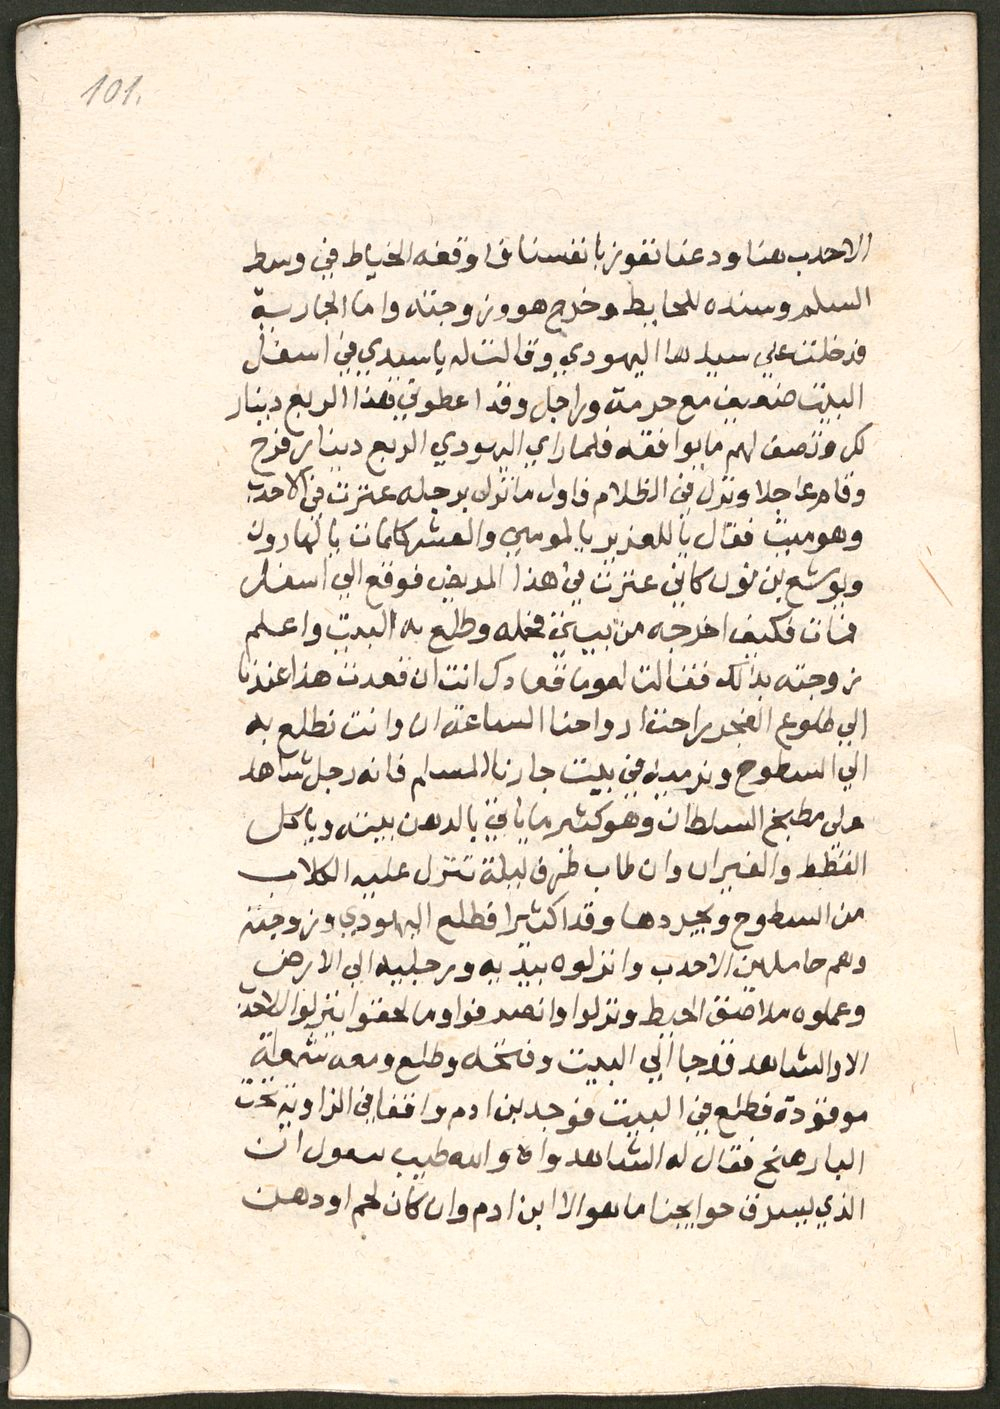 101.
الاحدب هنا ودعنا نفوز بانفسنا فاوقفه الخياط في وسط
السلم وسنده للحايط وخرج هو وزوجته واما الجارية
فدخلت علي سيدها اليهودي وقالت له يا سيدي في اسفل
البيت ضعيف مع حرمة وراجل وقد اعطوني هذا الربع دينار
لك وتصف لهم ما يوافقه فلما راي اليهودي الربع دينار فرح
وقام عاجلا ونزل في الظلام فاول ما نزل برجله عترت في الاحدب
وهو ميت فقال يا للعزير يا لموسي والعشر كلمات يا لهارون
ويوشع بن نون كاني عترت في هذا المريض فوقع الي اسفل
فمات فكيف اخرجه من بيتي فحمله وطلع به البيت واعلم
زوجته بذالك فقالت له وما قعادك انت ان قعدت هذا عندنا
الي طلوع الفجر راحت ارواحنا الساعة انا وانت نطلع به
الي السطوح ونرميه في بيت جارنا المسلم فانه رجل شاهد
علي مطبخ السلطان وهو كتير ما ياتي بالدهن بيته وياكل
القطط والفيران وان طاب طرف ليلة تنزل عليه الكلاب
من السطوح ويجردها وقد اكترا فطلع اليهودي وزوجته
وهم حاملين الاحدب وانزلوه بيديه ورجليه الي الارض
وعملوه ملاصق الحيط ونزلوا وانصرفوا وما لحقوا ينزلوا الاحدب
الا والشاهد قد جا الي البيت وفتحه وطلع ومعه شمعة
موقودة فطلع في البيت فوجد بن ادم واقفا في الزاوية تحت
البادهنج فقال له الشاهد واه والله طيب معول ان
الذي يسرق حوايجنا ما هو الا ابن ادم وان كان لحم او دهن